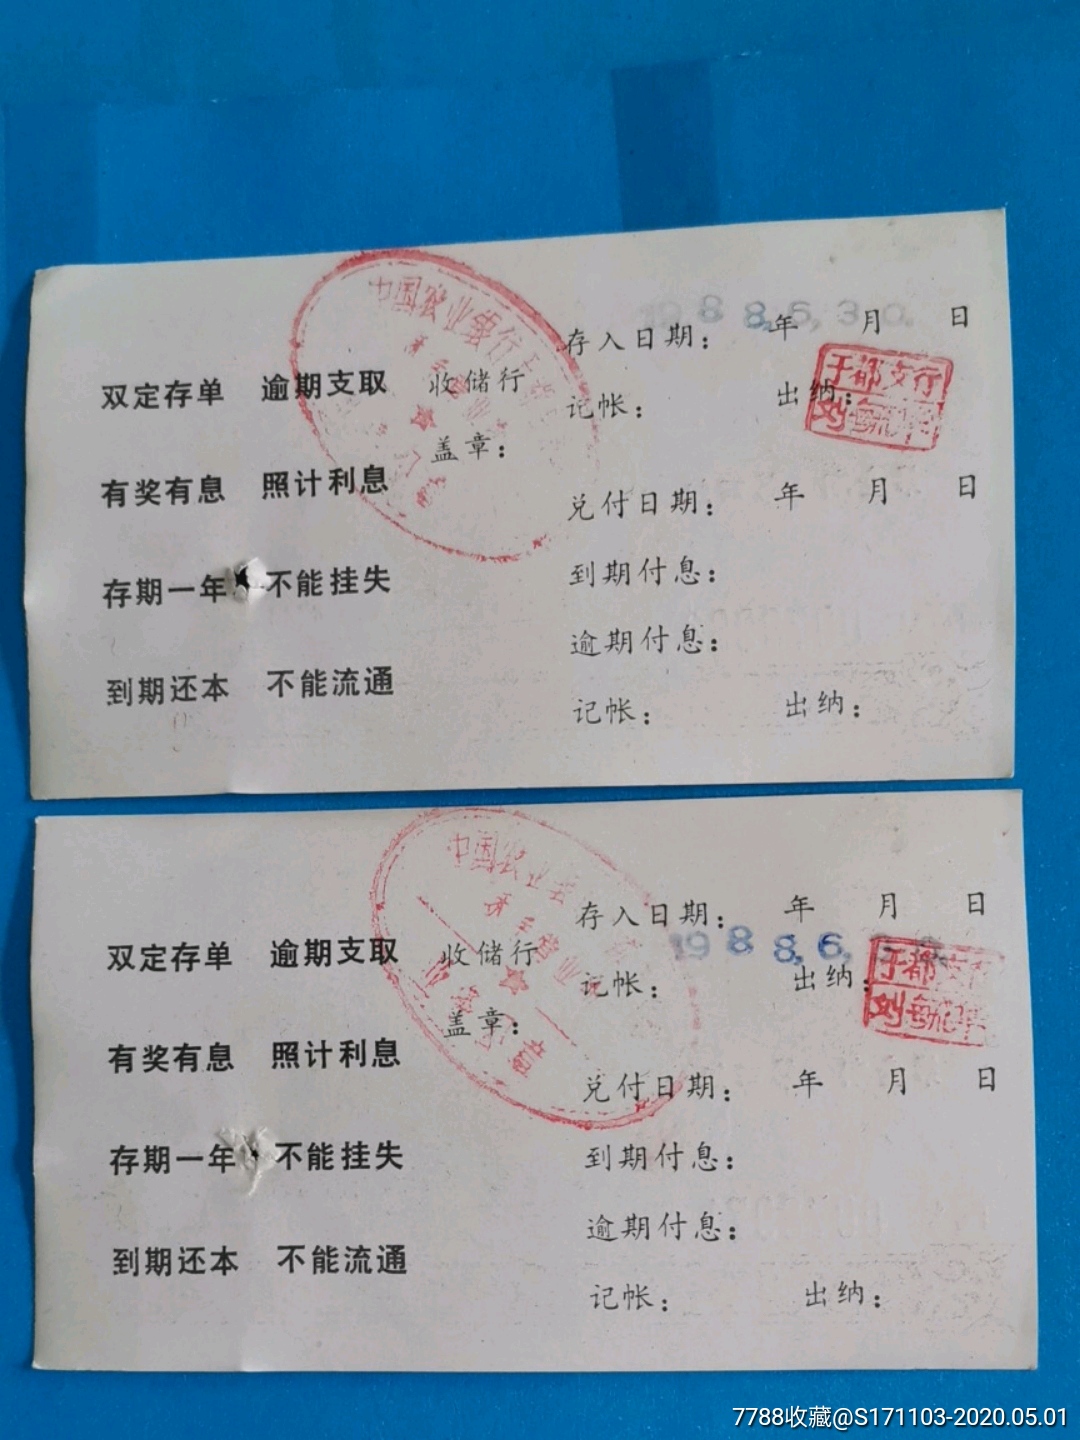 中国农业银行
1988.6.30.
存入日期： 年 月 日
双定存单 逾期支取 收储行
记帐： 出纳：
于都支行
刘
盖章：
有奖有息 照计利息
兑付日期： 年 月 日
存期一年 不能挂失
到期付息：
逾期付息：
到期还本 不能流通
记帐： 出纳：
中国农业
存入日期： 年 月 日
1988.6.
双定存单 逾期支取 收储行
记帐： 出纳：
于都支行
刘
盖章：
营业
有奖有息 照计利息
兑付日期： 年 月 日
存期一年 不能挂失
到期付息：
逾期付息：
到期还本 不能流通
记帐： 出纳：
7788收藏@S171103-2020.05.01